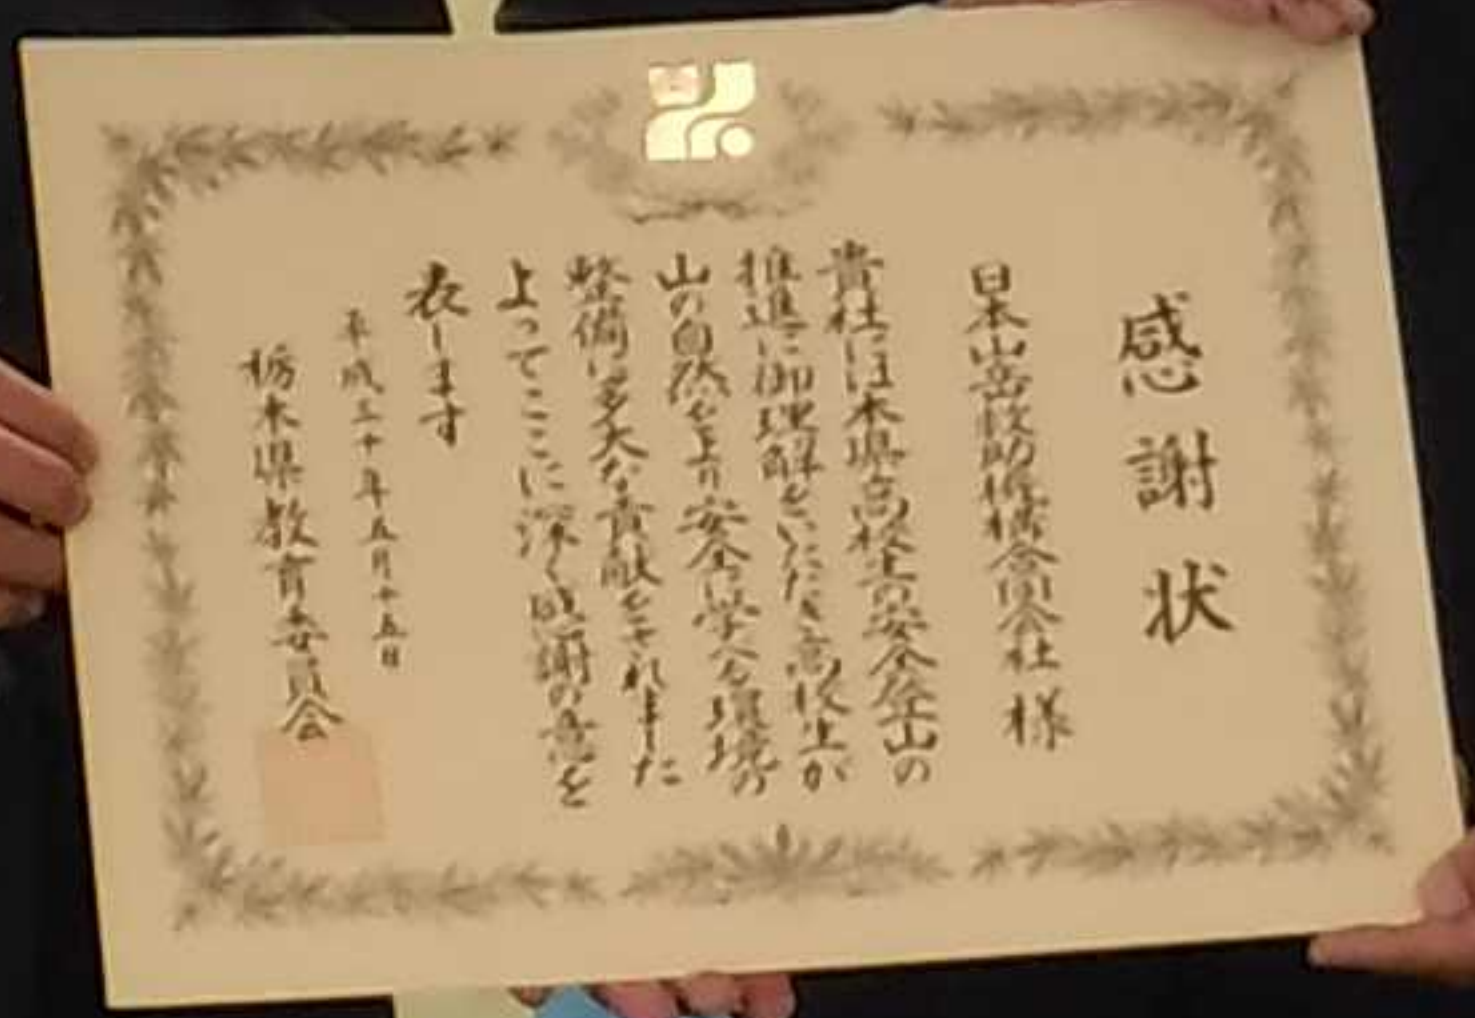 感謝状
日本山岳救助機構合同会社 様
貴社には本県高校生の安全登山の
推進に御理解をいただき高校生が
山の自然をより安全に学べる環境の
整備に多大な貢献をされました
よってここに深く感謝の意を
表します
平成三十年五月十五日
栃木県教育委員会